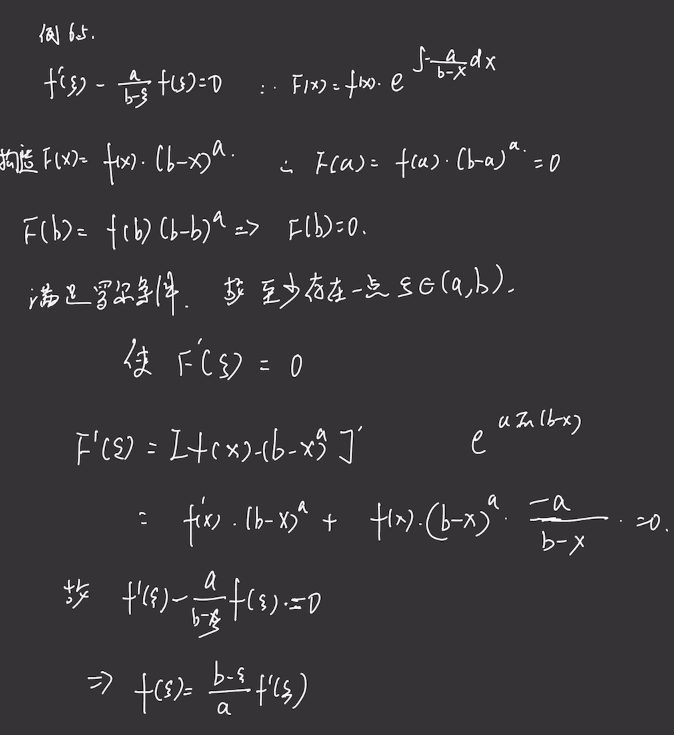 例65.
f'(ξ) - a/(b-ξ) f(ξ)=0 ∴ F(x)=f(x)·e^{∫-a/(b-x) dx}
构造 F(x)= f(x)·(b-x)^a. ∴ F(a)= f(a)·(b-a)^a.=0
F(b)= f(b)(b-b)^a => F(b)=0.
满足罗尔条件. 故 至少存在一点 ξ∈(a,b).
使 F'(ξ) = 0
F'(ξ) = [f(x)·(b-x)^a]' e^{a ln(b-x)}
= f'(x)·(b-x)^a + f(x)·(b-x)^a· -a/(b-x) ·=0.
故 f'(ξ)- a/(b-ξ) f(ξ).=0
=> f(ξ)= (b-ξ)/a f'(ξ)